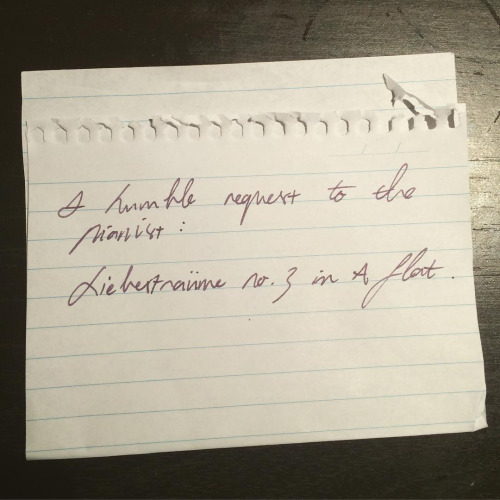 A humble request to the
pianist:
Liebesträume no. 3 in A flat.